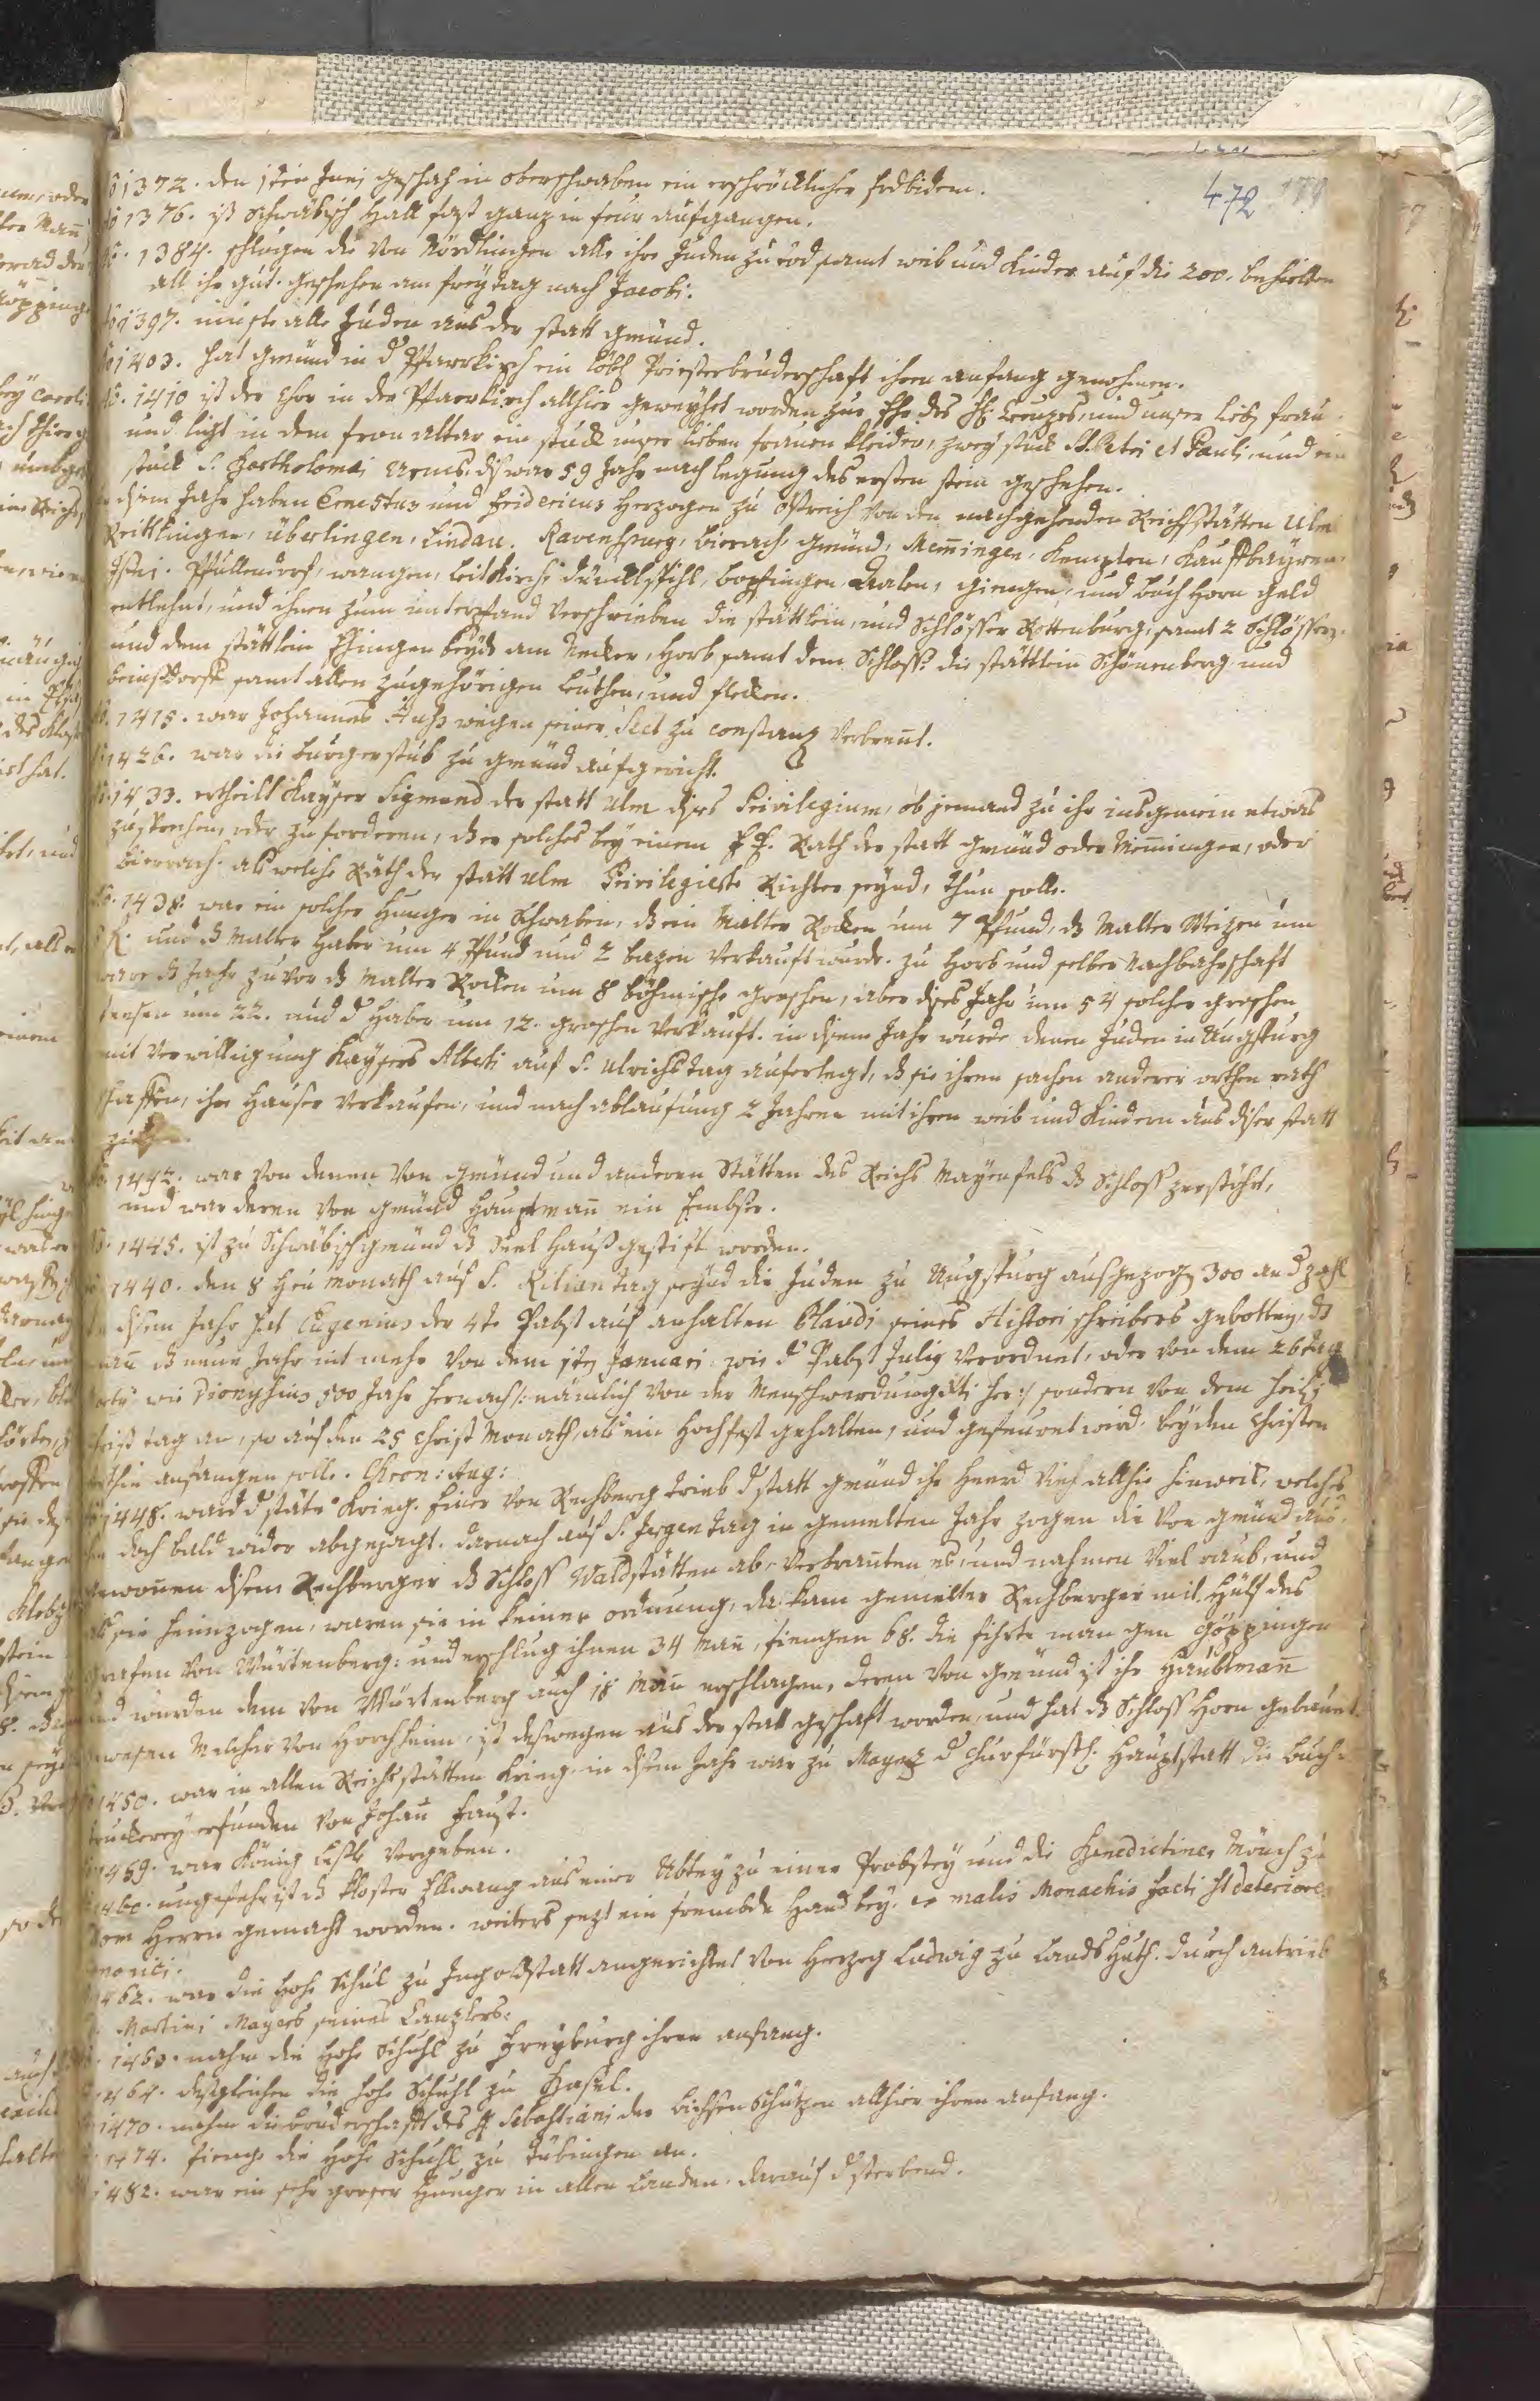 472
Aõ 1372. den 1ten Junj geschah in oberschwaben ein erschröcklicher Erdbidem.
Aõ 1376. ist Schwäbisch Hall fast ganz in feur aufgangen.
Aõ. 1384. schlugen die von Nördlingen alle ihre Juden zu tod samt weib und Kinder auf die 200. behielten
all ihr gut. geschehen am freytag nach Jacobi.
Aõ 1397. muste alle Juden aus der statt gmünd.
Aõ 1403. hat gmünd in d' Pfarrkirch ein löbl Priesterbruderschaft ihren anfang genohmen.
Aõ. 1410 ist der Chor in der Pfarrkirch allhier geweyhet worden zur Ehr des Hl: Creuzes und unser lieb frau
und ligt in dem fron altar ein stuck unser lieben frauen kleider, zwey stuck St. Petri et Pauli, und ein
stuck S. Bartholomäi Armes. diß war 59 Jahr nach legung des ersten stein geschehen.
In disem Jahr haben Ernestus und Fridericus Herzogen zu Östreich von den nachgehenden Reichsstätten Ulm
Reittlingen, überlingen, Lindau. Ravenspurg, bierach, gmünd, Memingen, Kempten, Kauffbayren,
Isni. Pfullendorf, wangen, leitKirch, dünckhlspihl, bopfingen, Aalen, giengen, und buch Horn geld
entlehnt, und ihnen zum unterpfand verschrieben die stättlein, und Schlösser Rottenburg, samt 2 Schlösser,
und dem stättlein Ehingen beyde am Necker, Horb samt dem Schloss. die stättlein Schönenberg und
beinsdorff samt allen zugehörigen leuthen, und flecken.
Aõ. 1415. war Johannes Huß wegen seiner Sect zu constanz verbrent.
Aõ 1426. war die burgerstub zu gmünd aufgericht.
Aõ. 1433. ertheilt Kayser Sigmund der statt Ulm dises Privilegium, ob jemand zu ihr insgemein etwas
zusprechen, oder zu forderen, der solches bey einem E. E. Rath der statt gmünd oder Memingen, oder
bierrach. als welche Räth der statt Ulm Privilegierte Richter seynd, thun solle.
Aõ. 1438. war ein solcher Hunger in Schwaben, dß ein Malter Rocken um 7 Pfund, dß Malter Weizen um
und dß Malter Haber um 4 Pfund und 2 bazen verkauft wurde. zu Horb und selber Nachbahrschaft
ware dß Jahr zuvor dß Malter Rocken um 8 böhmische groschen, aber dises Jahr um 54 solcher groschen
um 22. und d' Haber um 12. groschen verkauft. in disem Jahr wurde denen Juden in Augspurg
mit verwilligung Kaysers Alberti auf S. Ulrichstag auferlegt, dß sie ihren sachen anderer orthen rath
schaffen, ihre Häuser verkaufen, und nach ablaufung 2 Jahren mit ihren weib und Kindern aus diser statt
ziehen.
Aõ. 1442. war von denen von gmünd und anderen Stätten des Reichs Mayenfels dß Schloss zerstöhrt,
und war deren von gmünd Hauptman ein Embser.
Aõ. 1445. ist zu Schwäbischgmünd dß Seel Hauß gestift worden.
1440. den 8 Heu Monath auf S. Kilian tag seynd die Juden zu Augspurg ausgezogen 300 an d' zahl
In disem Jahr hat Eugenius der 4te Pabst auf anhalten Blandi seines Historischreibers gebotten, dß
man dß neue Jahr nit mehr von dem 1ten Januari wie d' Pabst Julig verordnet, oder von dem 26 tag
wie Dionysius 500 Jahr hernach /: nämlich von der Menschwerdung Xti her :/ sondern von dem Heilig
Christ tag an, so auf den 25 Christ Monath, als ein Hochfest gehalten, und gefeuret wird. bey den Christen
anfangen solle. Chron: Aug:
Aõ 1448. ward d' stätte Krieg. Einer von Rechberg trieb d' statt gmünd ihr Heerd Vieh allhie hinweck, welches
doch bald wider abgejagt. darnach auf S. Jergen tag in gemelten Jahr zogen die von gmünd aus,
gewonnen disem Rechberger dß Schloss Waldstätten ab, verbranten es, und nahmen viel raub, und
als sie heimzogen, waren sie in keiner ordnung, da kam gemelter Rechberger mit Hülf des
grafen von Würtenberg: und erschlug ihnen 34 Man, fiengen 68. die führte man gen göppingen
und wurden dem von Würtenberg auch 18 Man erschlagen, deren von gmünd ist ihr Haubtman
gewesen Melcher von Horchheim, ist deswegen aus der statt geschaft worden, und hat dß Schloss Horn gebauet.
1450. war in allen Reichsstätten Krieg. in disem Jahr war zu Maynz d' Churfürstl. Hauptstatt die buch=
truckerey erfunden von Johan Faust.
1459. war König Lasle vergeben.
1460. ungefehr ist dß Kloster Ellwang aus einer Abtey zu einer Probstey und die Benedictiner Mönch zu
Dom Herrn gemacht worden. weiters sezt ein frembde Hand bey. ex malis Monachis facti st deteriores
Canonici.
1462. war die Hohe Schul zu Ingolstatt angerichtet von Herzog Ludwig zu LandsHuth. durch antrieb
Martini Mayers seines Canzlers.
1460. nahm die Hohe Schuhl zu Freyburg ihren anfang.
1464. desgleichen die Hohe Schuhl zu Basel.
1470. nahm die bruderschafft des H Sebastiani der bichsen Schüzen allhier ihren anfang.
1474. fienge die Hohe Schuhl zu Tübingen an.
1482. war ein sehr grosser Hunger in allen Landen. darauf d' sterbend.